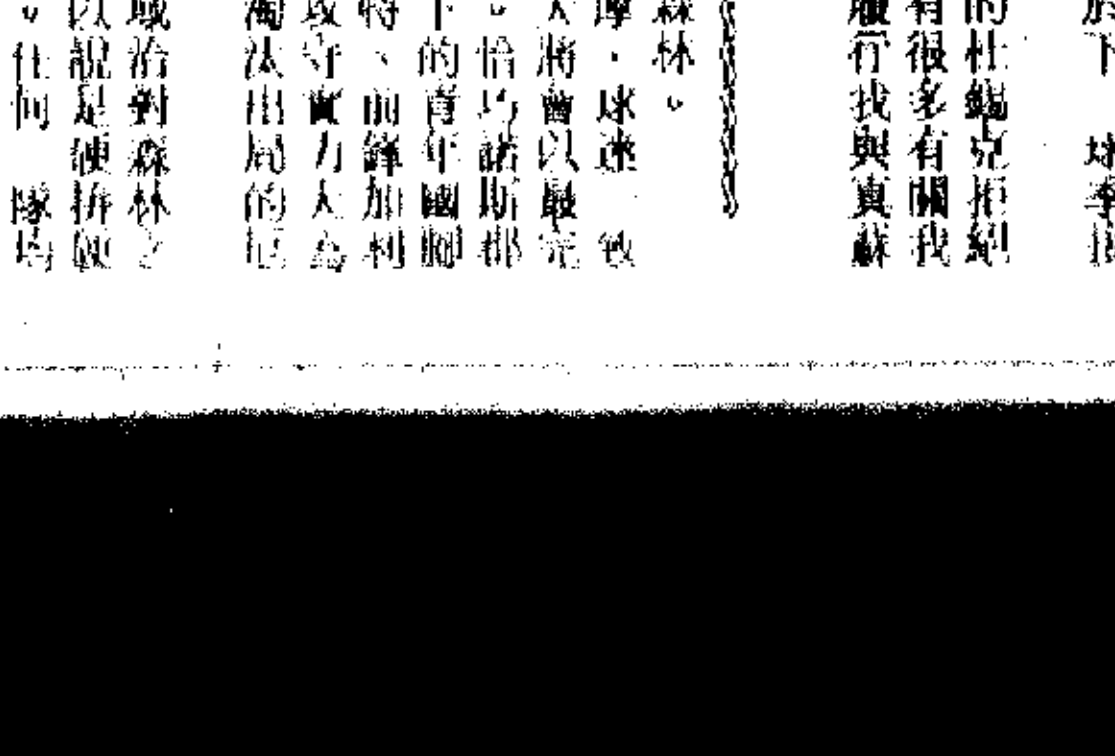 於下 球季报
的杜錫克拒絕
有很多有關我
履行找與真蘇
森林。
摩·球迷 致
大將會以最完
。恰巧諾斯郡
下的青年國腳
特、前鋒加利
攻守實力大為
淘汰出局的厄
域治對森林之
以說是便拆便
。任何 隊均